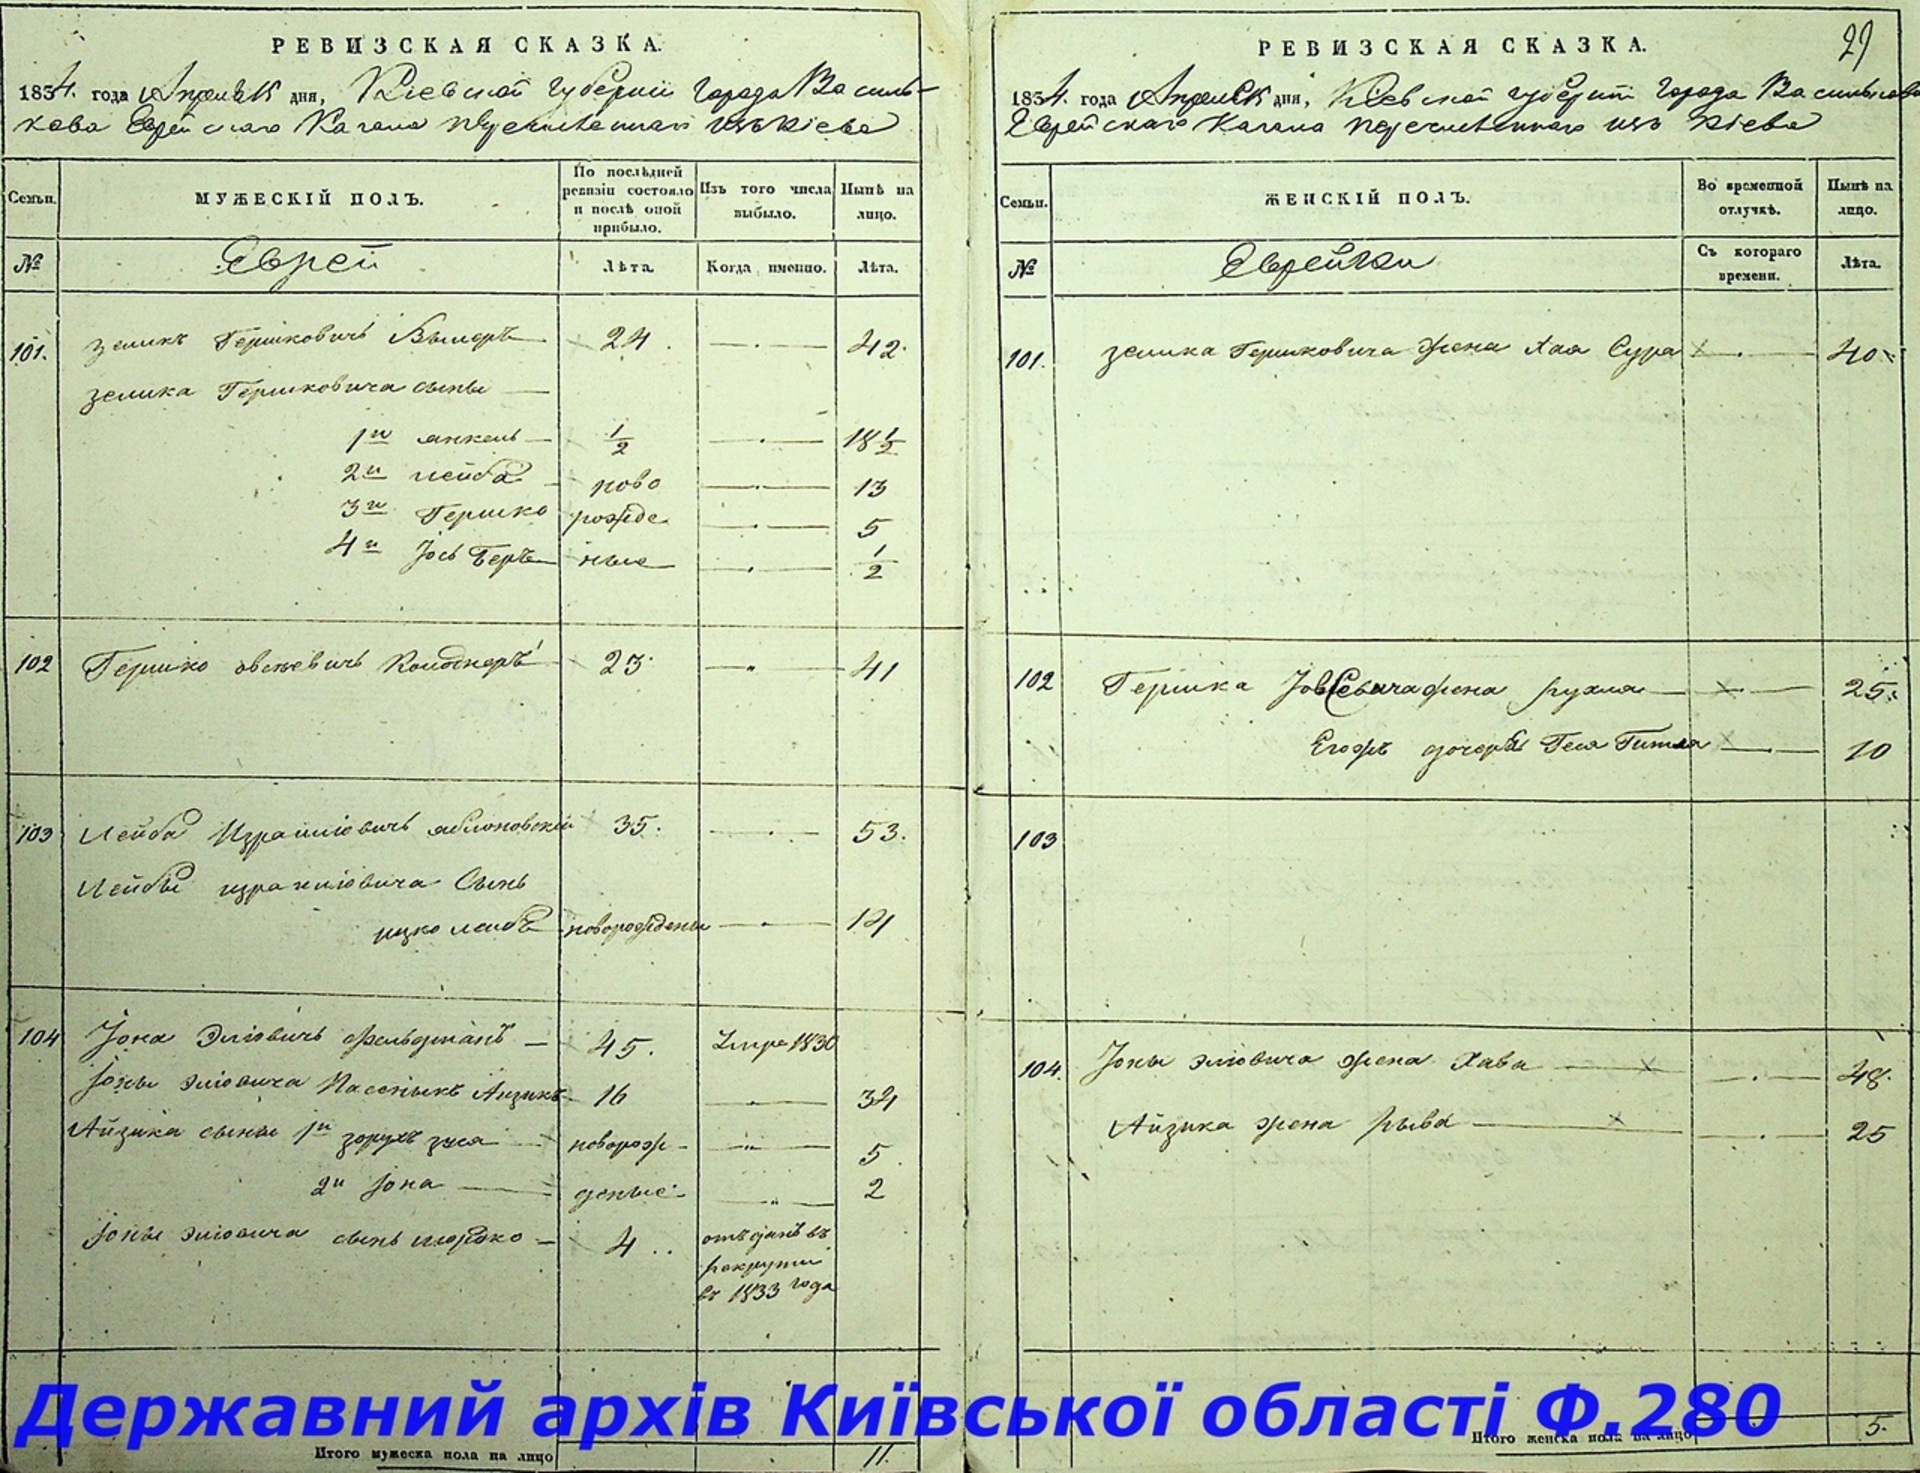 РЕВИЗСКАЯ СКАЗКА.
1834. года Апреля дня, Кіевской губерніи города Василь-
кова Еврейскаго Кагала перечисленнаго изъ Кіева
Семьи.
МУЖЕСКІЙ ПОЛЪ.
По послѣдней ревизіи состояло и послѣ оной прибыло.
Изъ того числа выбыло.
Нынѣ на лицо.
№
Еврей
Лѣта.
Когда именно.
Лѣта.
101. Зеликъ Гершковичъ 24. 42.
Зелика Гершковича сыны
1й Янкель 1/2 18 1/2
2й Лейба ново 13
3й Гершко рожде 5
4й Іось Беръ ные 1/2
102 Гершко Овсѣевичъ Колоднеръ 23. 41
103 Лейба Израиловичъ Яблоновскій 35. 53.
Лейбы Израиловича Сынъ
Ицко Лейбъ новорожденый 14
104 Іона Эліовичъ Фельдманъ 45. Умре 1830
Іоны Эліовича Пасынокъ Айзикъ 16 34
Айзика сыны 1й Зуся новорож- 5.
2й Іона деные 2
Іоны Эліовича сынъ Мордко 4.. отъданъ въ
рекруты
въ 1833 года
Итого мужеска пола на лицо 11.
29
РЕВИЗСКАЯ СКАЗКА.
1834. года Апреля дня, Кіевской губерніи города Василькова
Еврейскаго Кагала перечисленнаго изъ Кіева
Семьи.
ЖЕНСКІЙ ПОЛЪ.
Во временной отлучкѣ.
Нынѣ на лицо.
№
Еврейки
Съ котораго времени.
Лѣта.
101. Зелика Гершковича жена Хая Сура 40
102 Гершка Іовсевича жена Рухля 25
Егожъ дочеръ Геся Гитля 10
103
104. Іоны Эліовича жена Хава 48.
Айзика жена Рыва 25
Итого женска пола на лицо 5.
Державний архів Київської області Ф.280